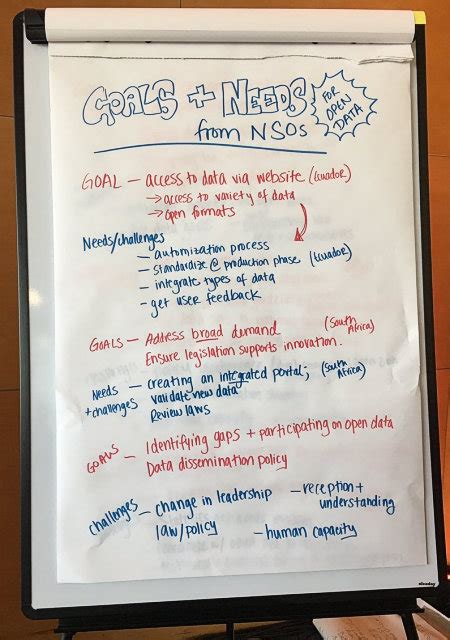 GOALS + NEEDS
from NSOs
FOR
OPEN
DATA
GOAL – access to data via website (Ecuador)
→ access to variety of data
→ open formats
Needs/challenges
– automization process
– standardize @ production phase (Ecuador)
– integrate types of data
– get user feedback
GOALS – Address broad demand (South Africa)
Ensure legislation supports innovation.
Needs + challenges – creating an integrated portal; (South Africa)
validate new data
Review laws
GOALS – Identifying gaps + participating on open data
Data dissemination policy
Challenges – change in leadership – reception + understanding
law/policy – human capacity